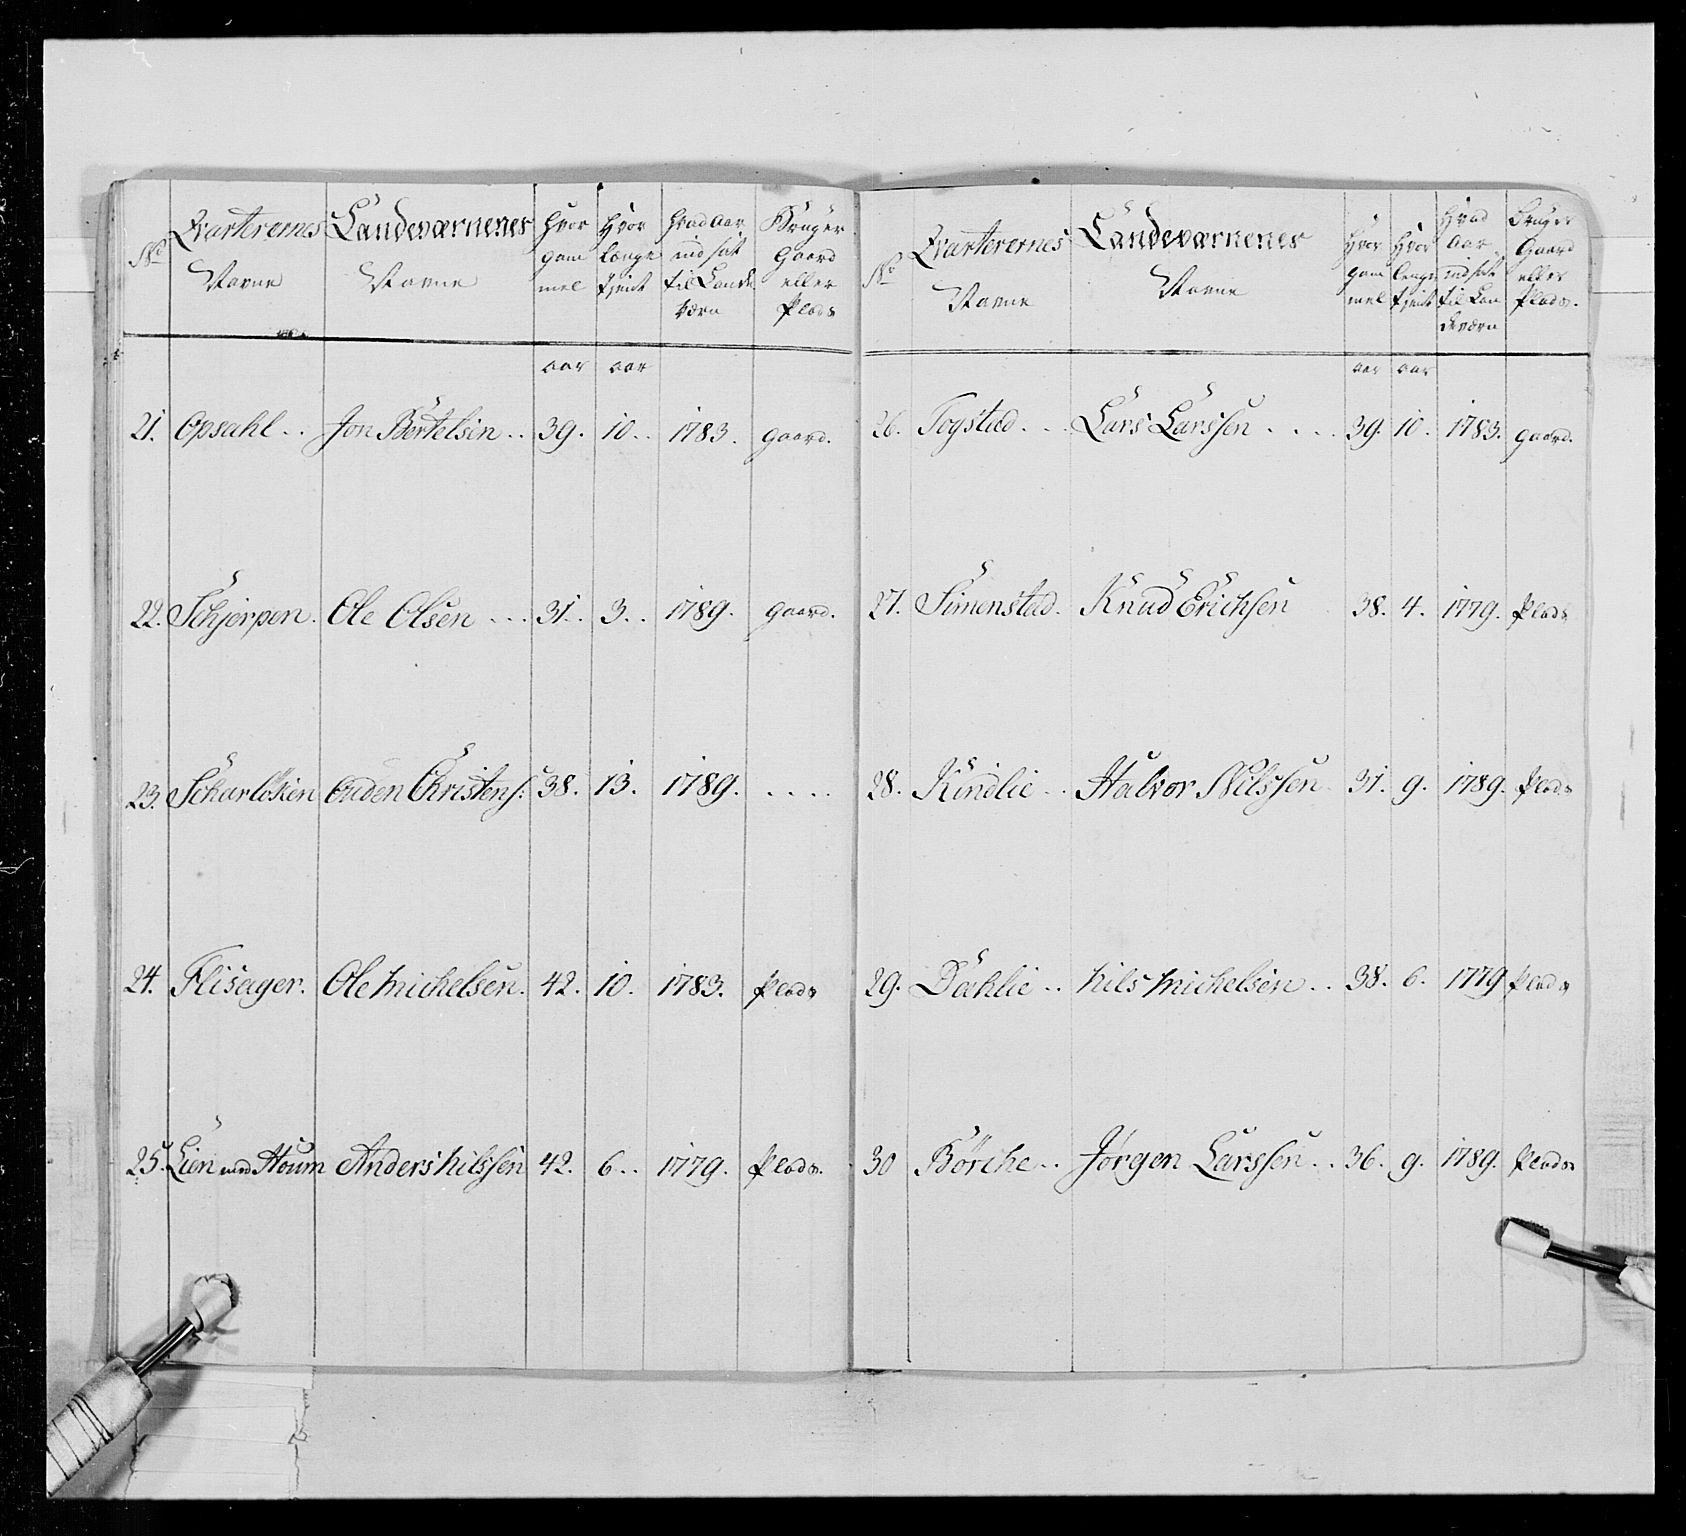 No Qvarterernes Navne Landeværnenes Navne Hvor gammel Hvor længe tjent Hvad Aar indsat til Landeværn Bruger Gaard eller Plads
aar aar
21. Opsahl .. Jon Bertelsen .. 39. 10 .. 1783. gaard.
22. Schjerpen. Ole Olsen ... 31. 3 .. 1789. gaard.
23. Scharlöken Ouden Christens: 38. 13. 1789. ....
24. Flisager. Ole Michelsen. 42. 10. 1783. Plads
25. Lien med Houm Anders Nilssen 42. 6 .. 1779. Plads.
No Qvarterernes Navne Landeværnenes Navne Hvor gammel Hvor lenge tjent Hvad Aar indsat til Landeværn Bruger Gaard eller Plads.
aar aar
26. Togstad ... Lars Larssen .... 39. 10. 1783. gaard.
27. Simenstad. Knud Erichsen 38. 4. 1779. Plads
28. Kindlie .. Halvor Nilssen 31. 9. 1789. Plads
29. Dæhlie .. Nils Michelsen .. 38. 6. 1779 Plads
30 Börche .. Jørgen Larssen .. 36. 9. 1789. Plads